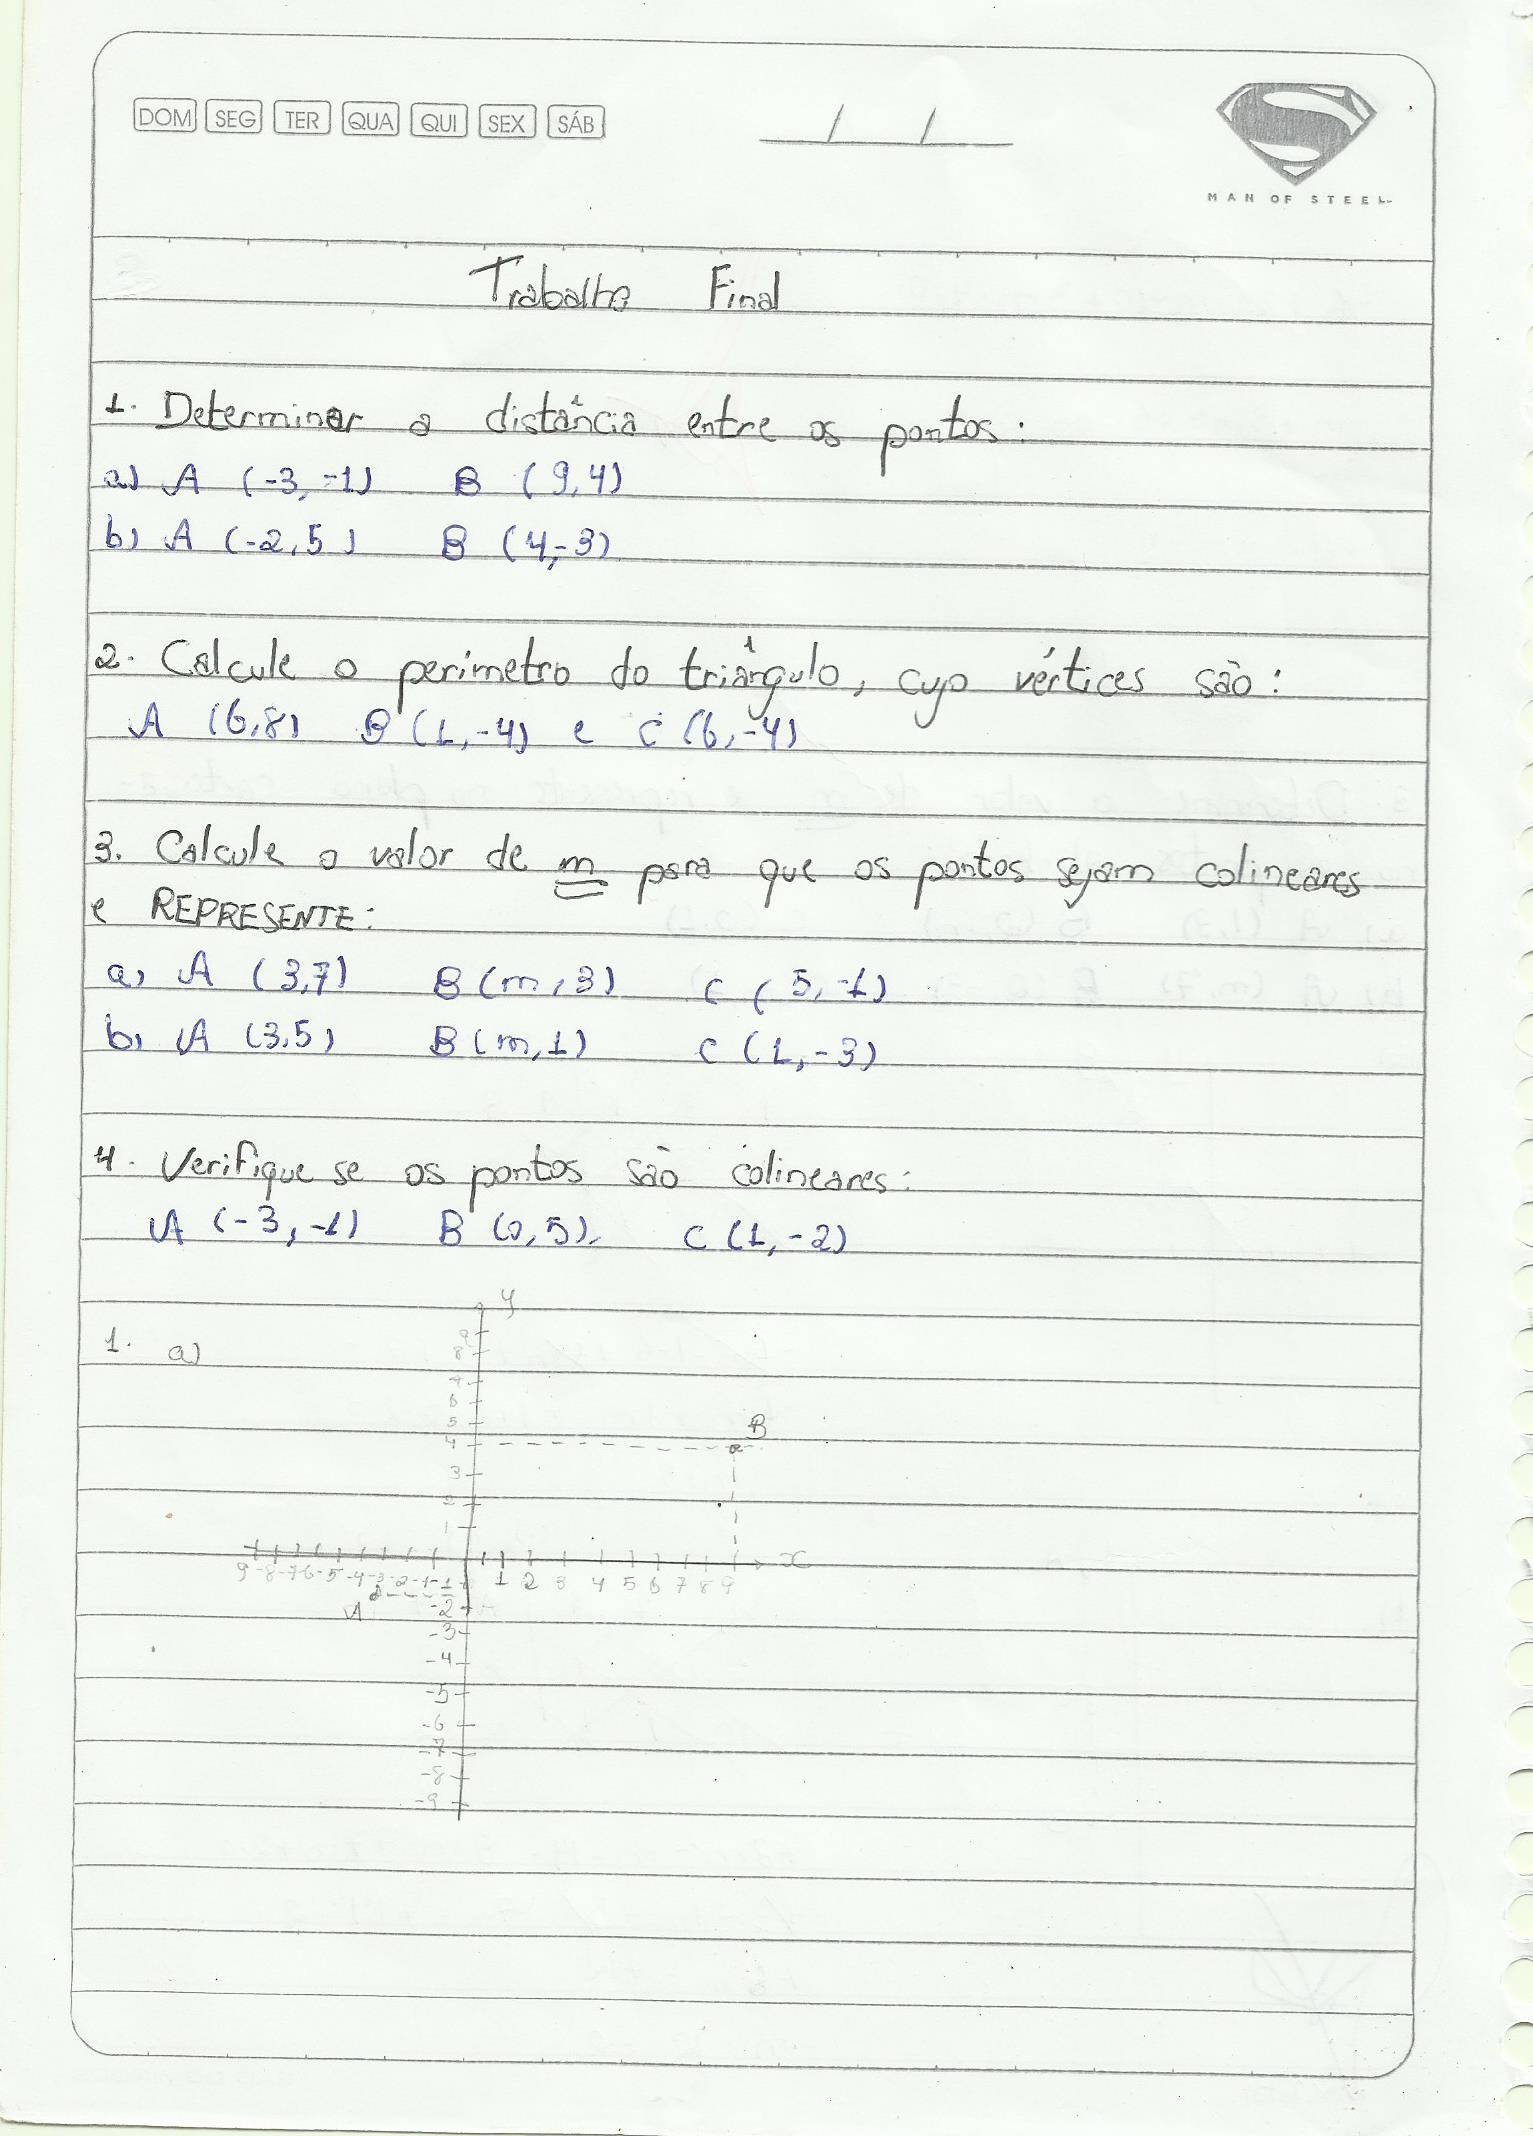 DOM SEG TER QUA QUI SEX SÁB
/ /
MAN OF STEEL
Trabalho Final
1. Determinar a distância entre os pontos:
a) A (-3, -1) B (9,4)
b) A (-2,5) B (4,-3)
2. Calcule o perimetro do triângulo, cujo vértices são:
A (6,8) B (1,-4) e C (6,-4)
3. Calcule o valor de m para que os pontos sejam colineares
e REPRESENTE:
a) A (3,7) B (m,3) C (5,-1)
b) A (3,5) B (m,1) C (1,-3)
4. Verifique se os pontos são colineares:
A (-3,-1) B (0,5), C (1,-2)
y
1. a)
9
8
7
6
5
B
4
3
2
1
x
9 -8 -7 -6 -5 -4 -3 -2 -1 -1 1 2 3 4 5 6 7 8 9
A
-2
-3
-4
-5
-6
-7
-8
-9